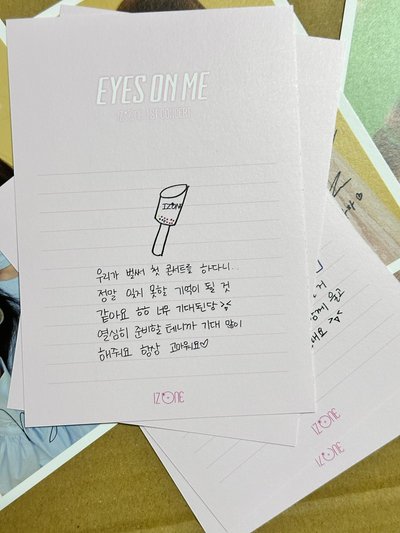 EYES ON ME
IZ*ONE 1ST CONCERT
IZONE
우리가 벌써 첫 콘서트를 하다니..
정말 잊지 못할 기억이 될 것
같아요 ㅎㅎ 너무 기대된당
열심히 준비할 테니까 기대 많이
해줘요 항상 고마워요♡
IZ*ONE
IZ*ONE
IZ*ONE